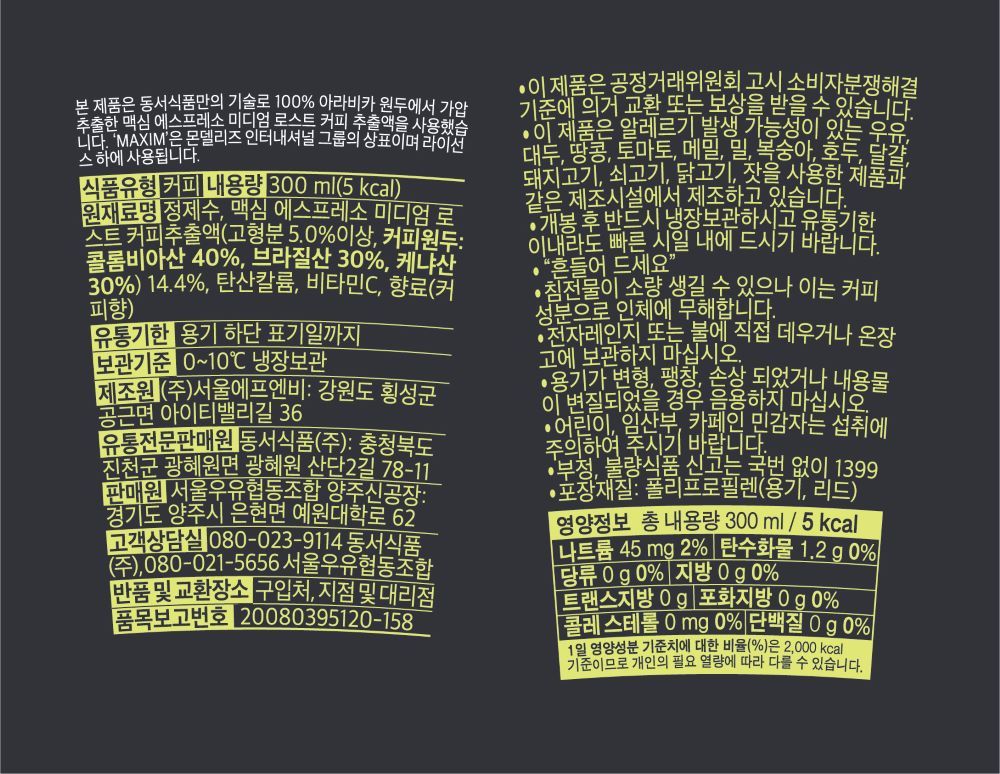 본 제품은 동서식품만의 기술로 100% 아라비카 원두에서 가압
추출한 맥심 에스프레소 미디엄 로스트 커피 추출액을 사용했습
니다. ‘MAXIM’은 몬델리즈 인터내셔널 그룹의 상표이며 라이선
스 하에 사용됩니다.
식품유형 커피 내용량 300 ml(5 kcal)
원재료명 정제수, 맥심 에스프레소 미디엄 로
스트 커피추출액(고형분 5.0%이상, 커피원두:
콜롬비아산 40%, 브라질산 30%, 케냐산
30%) 14.4%, 탄산칼륨, 비타민C, 향료(커
피향)
유통기한 용기 하단 표기일까지
보관기준 0~10℃ 냉장보관
제조원 (주)서울에프엔비: 강원도 횡성군
공근면 아이티밸리길 36
유통전문판매원 동서식품(주): 충청북도
진천군 광혜원면 광혜원 산단2길 78-11
판매원 서울우유협동조합 양주신공장:
경기도 양주시 은현면 예원대학로 62
고객상담실 080-023-9114 동서식품
(주),080-021-5656 서울우유협동조합
반품 및 교환장소 구입처, 지점 및 대리점
품목보고번호 20080395120-158
•이 제품은 공정거래위원회 고시 소비자분쟁해결
기준에 의거 교환 또는 보상을 받을 수 있습니다.
•이 제품은 알레르기 발생 가능성이 있는 우유,
대두, 땅콩, 토마토, 메밀, 밀, 복숭아, 호두, 달걀,
돼지고기, 쇠고기, 닭고기, 잣을 사용한 제품과
같은 제조시설에서 제조하고 있습니다.
•개봉 후 반드시 냉장보관하시고 유통기한
이내라도 빠른 시일 내에 드시기 바랍니다.
•“흔들어 드세요”
•침전물이 소량 생길 수 있으나 이는 커피
성분으로 인체에 무해합니다.
•전자레인지 또는 불에 직접 데우거나 온장
고에 보관하지 마십시오.
•용기가 변형, 팽창, 손상 되었거나 내용물
이 변질되었을 경우 음용하지 마십시오.
•어린이, 임산부, 카페인 민감자는 섭취에
주의하여 주시기 바랍니다.
•부정, 불량식품 신고는 국번 없이 1399
•포장재질: 폴리프로필렌(용기, 리드)
영양정보 총 내용량 300 ml / 5 kcal
나트륨 45 mg 2% 탄수화물 1.2 g 0%
당류 0 g 0% 지방 0 g 0%
트랜스지방 0 g 포화지방 0 g 0%
콜레스테롤 0 mg 0% 단백질 0 g 0%
1일 영양성분 기준치에 대한 비율(%)은 2,000 kcal
기준이므로 개인의 필요 열량에 따라 다를 수 있습니다.